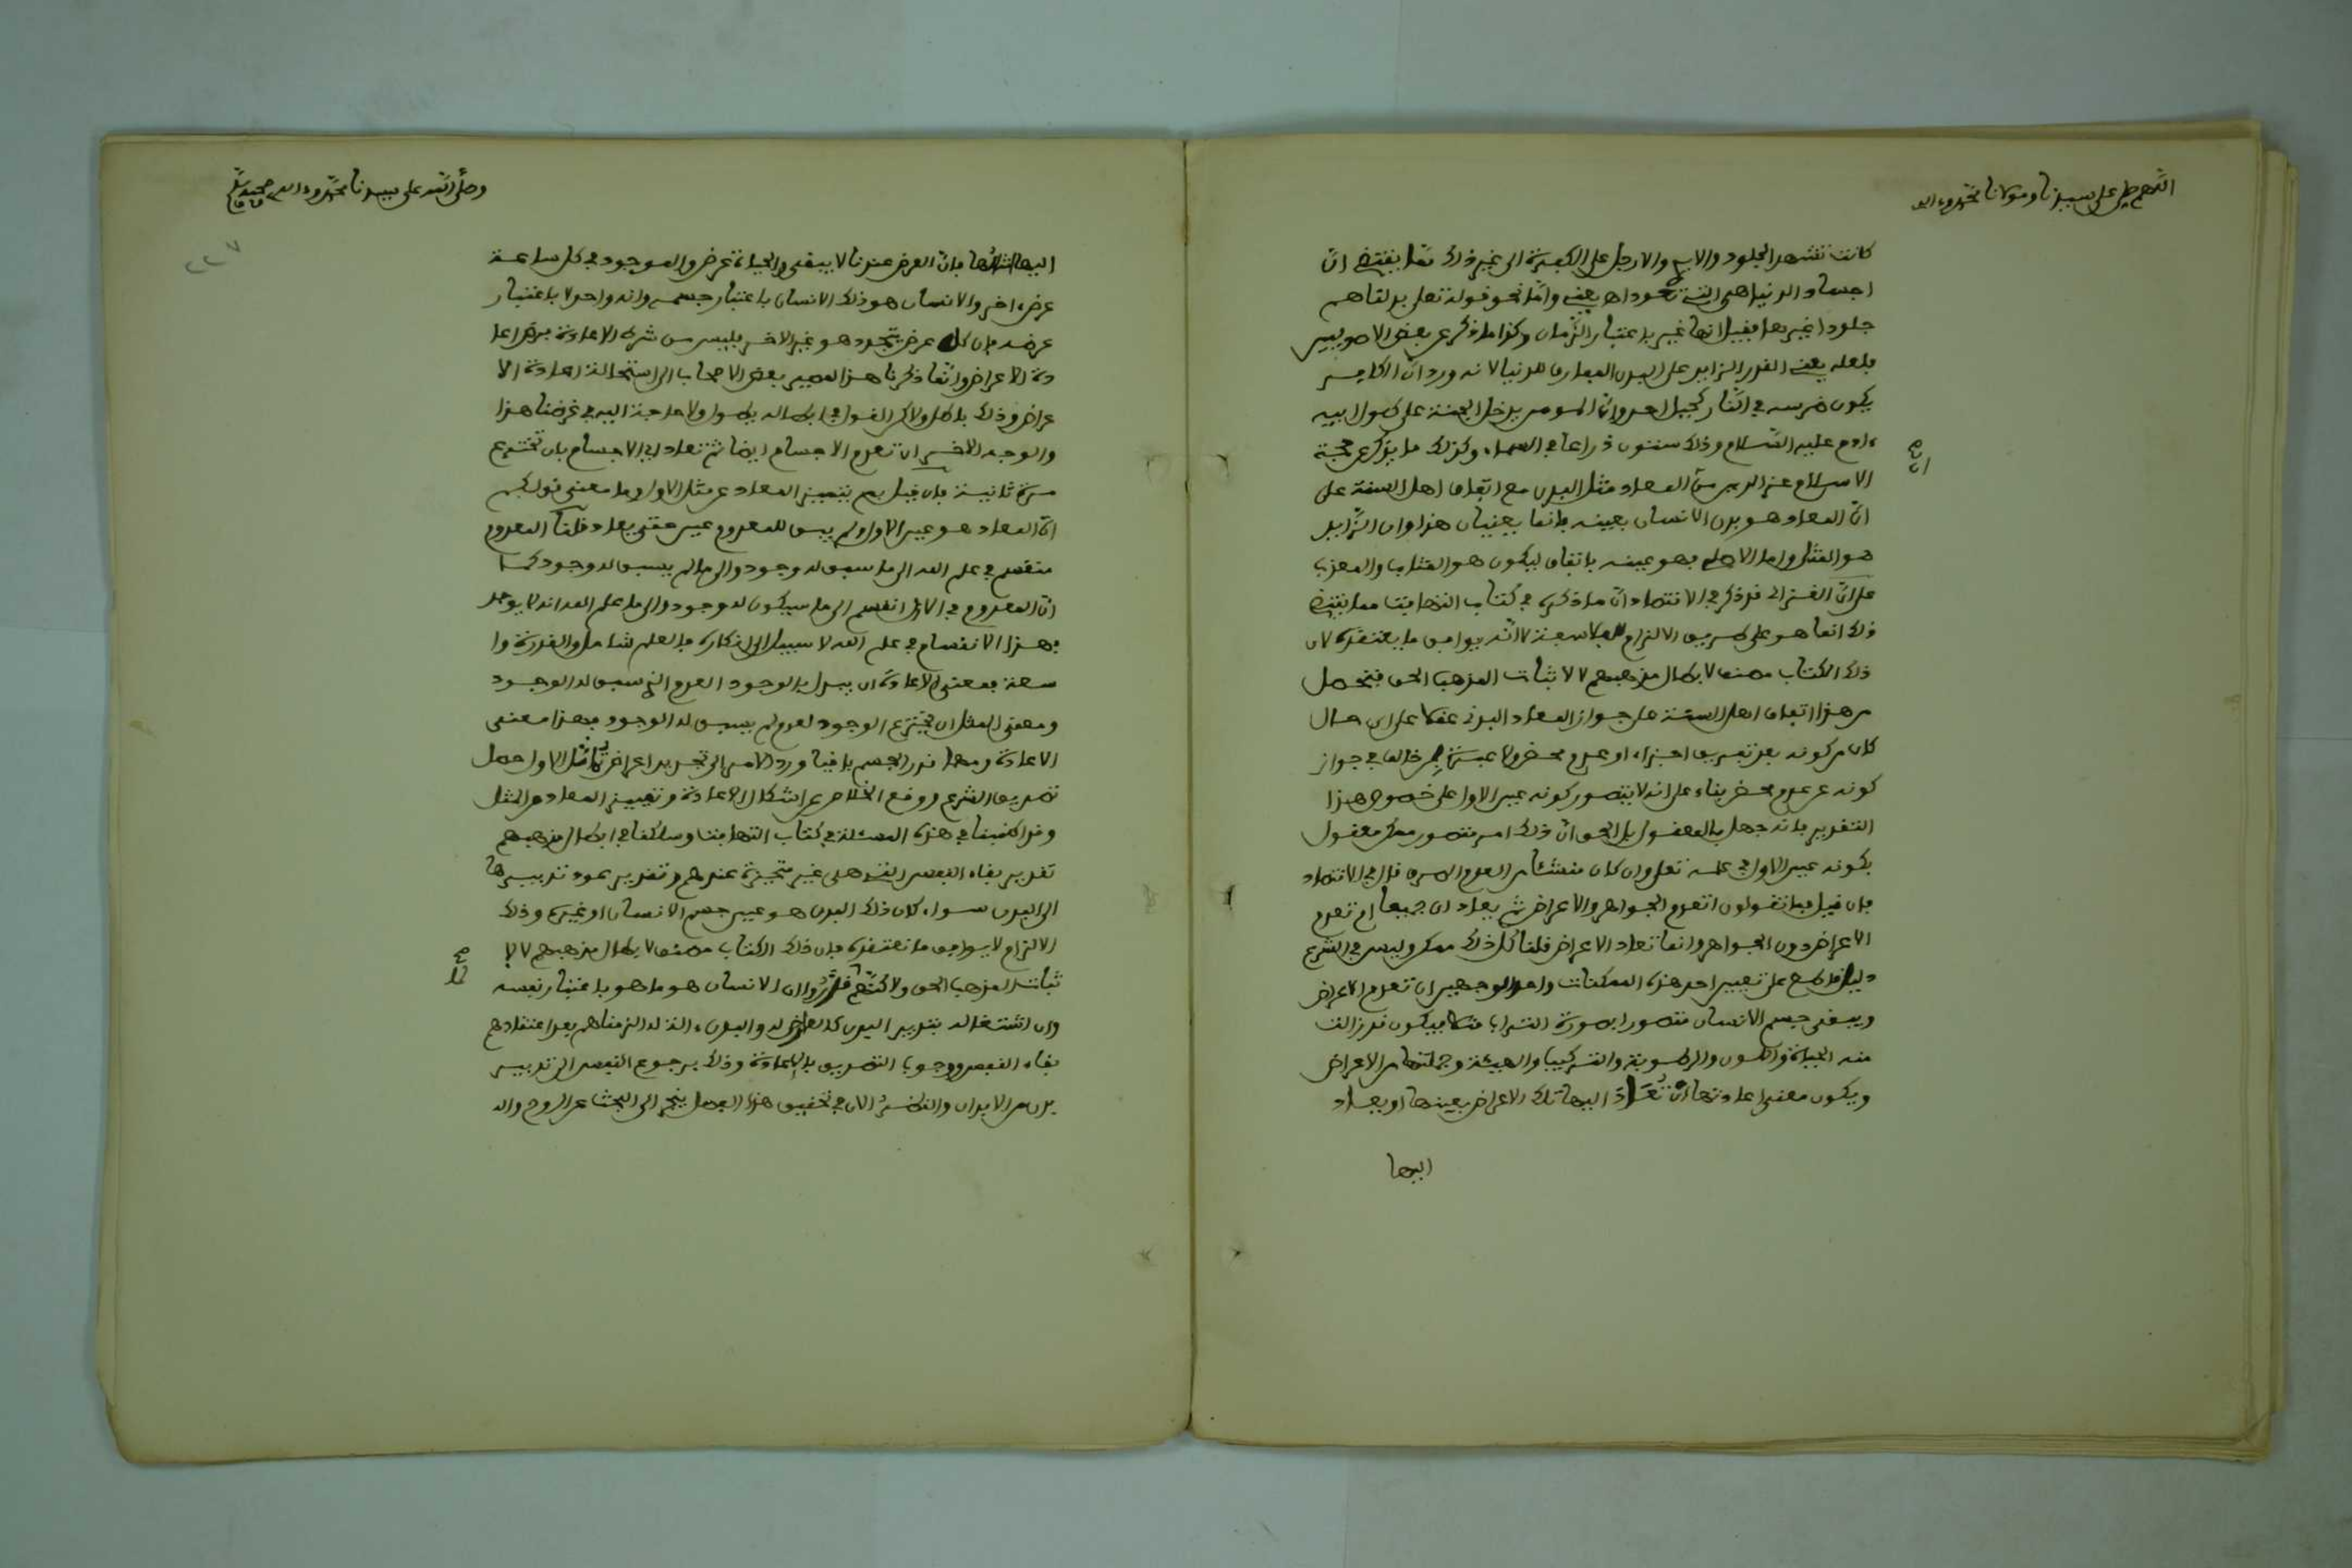 اللهم صل على سيدنا ومولانا محمد وءاله
كانت تشهد الجلود والايدي والارجل على الكفرة الى غير ذلك مما يقتضي ان
اجساد الدنيا هي التي تعود اهـ يعني وأما نحو قوله تعلى بدلناهم
جلودا غيرها فقيل انها غير باعتبار الزمان وكذا ما ذكر عن بعض الاصوليين
فلعله يعني القدر الزايد على البدن المفارق للدنيا لانه ورد ان الكافر
يكون ضرسه في النار كجبل احد وان المومن يدخل الجنة على طول ابيه
ءادم عليه السلام وذلك ستون ذراعا في السماء وكذلك ما يذكر عن حجة
الاسلام عز الدين من ان المعاد مثل البدن مع اتفاق اهل السنة على
ان المعاد هو بدن الانسان بعينه فانما يعنيان هذا وان الزايد
هو المثل واما الاصلي فهو عينه باتفاق ليكون هو المثاب والمعذب
على ان الغزالي قد ذكر في الاقتصاد ان ما ذكره في كتاب التهافت مما يقتضي
ذلك انما هو على طريق الالزام للفلاسفة لا انه يوافق ما يعتقده لان
ذلك الكتاب مصنف لابطال مذهبهم لا لاثبات المذهب الحق فتحصل
من هذا اتفاق اهل السنة على جواز المعاد البدني عقلا على اي حال
كان من كونه بعد تفريق اجزاء او عدم محض ولا عبرة بمن خالف في جواز
كونه عن عدم محض بناء على انه لا يتصور كونه عين الاول على خصوص هذا
التقرير فانه جهل بالمعقول بل الحق ان ذلك امر متصور ممكن معقول
بكونه عين الاول في علمه تعلى وان كان منشئا من العدم الصرف قال في الاقتصاد
فان قيل فما تقولون اتعدم الجواهر والاعراض ثم يعادان جميعا ام تعدم
الاعراض دون الجواهر وانما تعاد الاعراض قلنا كل ذلك ممكن وليس في الشرع
دليل قاطع على تعيين احد هذه الممكنات واحد الوجهين ان تعدم الاعراض
ويبقى جسم الانسان متصورا بصورة التراب مثلا فيكون قد زالت
منه الحياة واللون والرطوبة والتركيب والهيئة وجملتها من الاعراض
ويكون معنى اعادتها ان تعاد اليها تلك الاعراض بعينها او يعاد
اليها
وصلى الله على سيدنا محمد وءاله وصحبه وسلم
٢٢٧
اليها امثالها فان العرض عندنا لا يبقى والحياة عرض والموجود في كل ساعة
عرض ءاخر والانسان هو ذلك الانسان باعتبار جسمه وانه واحد لا باعتبار
عرضه فان كل عرض يتجدد هو غير الاخر فليس من شرط الاعادة فرض اعا
دة الاعراض وانما ذكرنا هذا لمصير بعض الاصحاب الى استحالة اعادة الا
عراض وذلك باطل ولاكن القول في ابطاله يطول ولا حاجة اليه في غرضنا هذا
والوجه الاخر ان تعدم الاجسام ايضا ثم تعاد اي الاجسام بان تخترع
مرة ثانية فان قيل بم يتميز المعاد عن مثل الاول وما معنى قولكم
ان المعاد هو عين الاول ولم يبق للمعدوم عين حتى يعاد قلنا المعدوم
منقسم في علم الله الى ما سبق له وجود والى ما لم يسبق له وجود كما
ان المعدوم في الازل انقسم الى ما سيكون له وجود والى ما علم الله انه لا يوجد
فهذا الانقسام في علم الله لا سبيل الى انكاره فالعلم شامل والقدرة وا
سعة فمعنى الاعادة ان يبدل بالوجود العدم الذي سبق له الوجود
ومعنى المثل ان يخترع الوجود لعدم لم يسبق له الوجود فهذا معنى
الاعادة ومهما قدر الجسم باقيا ورد الامر الى تجديد اعراض تماثل الاول حصل
تصديق الشرع ووقع الخلاص عن اشكال الاعادة وتمييز المعاد من المثل
وقد اطنبنا في هذه المسئلة في كتاب التهافت وسلكنا في ابطال مذهبهم
تقرير بقاء النفس التي هي غير متحيزة عندهم وتقدير عود تدبيرها
الى البدن سواء كان ذلك البدن هو عين جسم الانسان او غيره وذلك
الالزام لا يوافق ما نعتقده فان ذلك الكتاب مصنف لابطال مذهبهم لا لا
ثبات المذهب الحق ولاكنهم قدروا ان الانسان هو ما هو باعتبار نفسه
وان اشتغاله بتدبير البدن كالعارض له والبدن ءالة له الزمناهم بعد اعتقادهم
بقاء النفس وجوب التصديق بالاعادة وذلك برجوع النفس الى تدبير
بدن من الابدان والنظر الان في تحقيق هذا الفصل ينجر الى البحث عن الروح وال